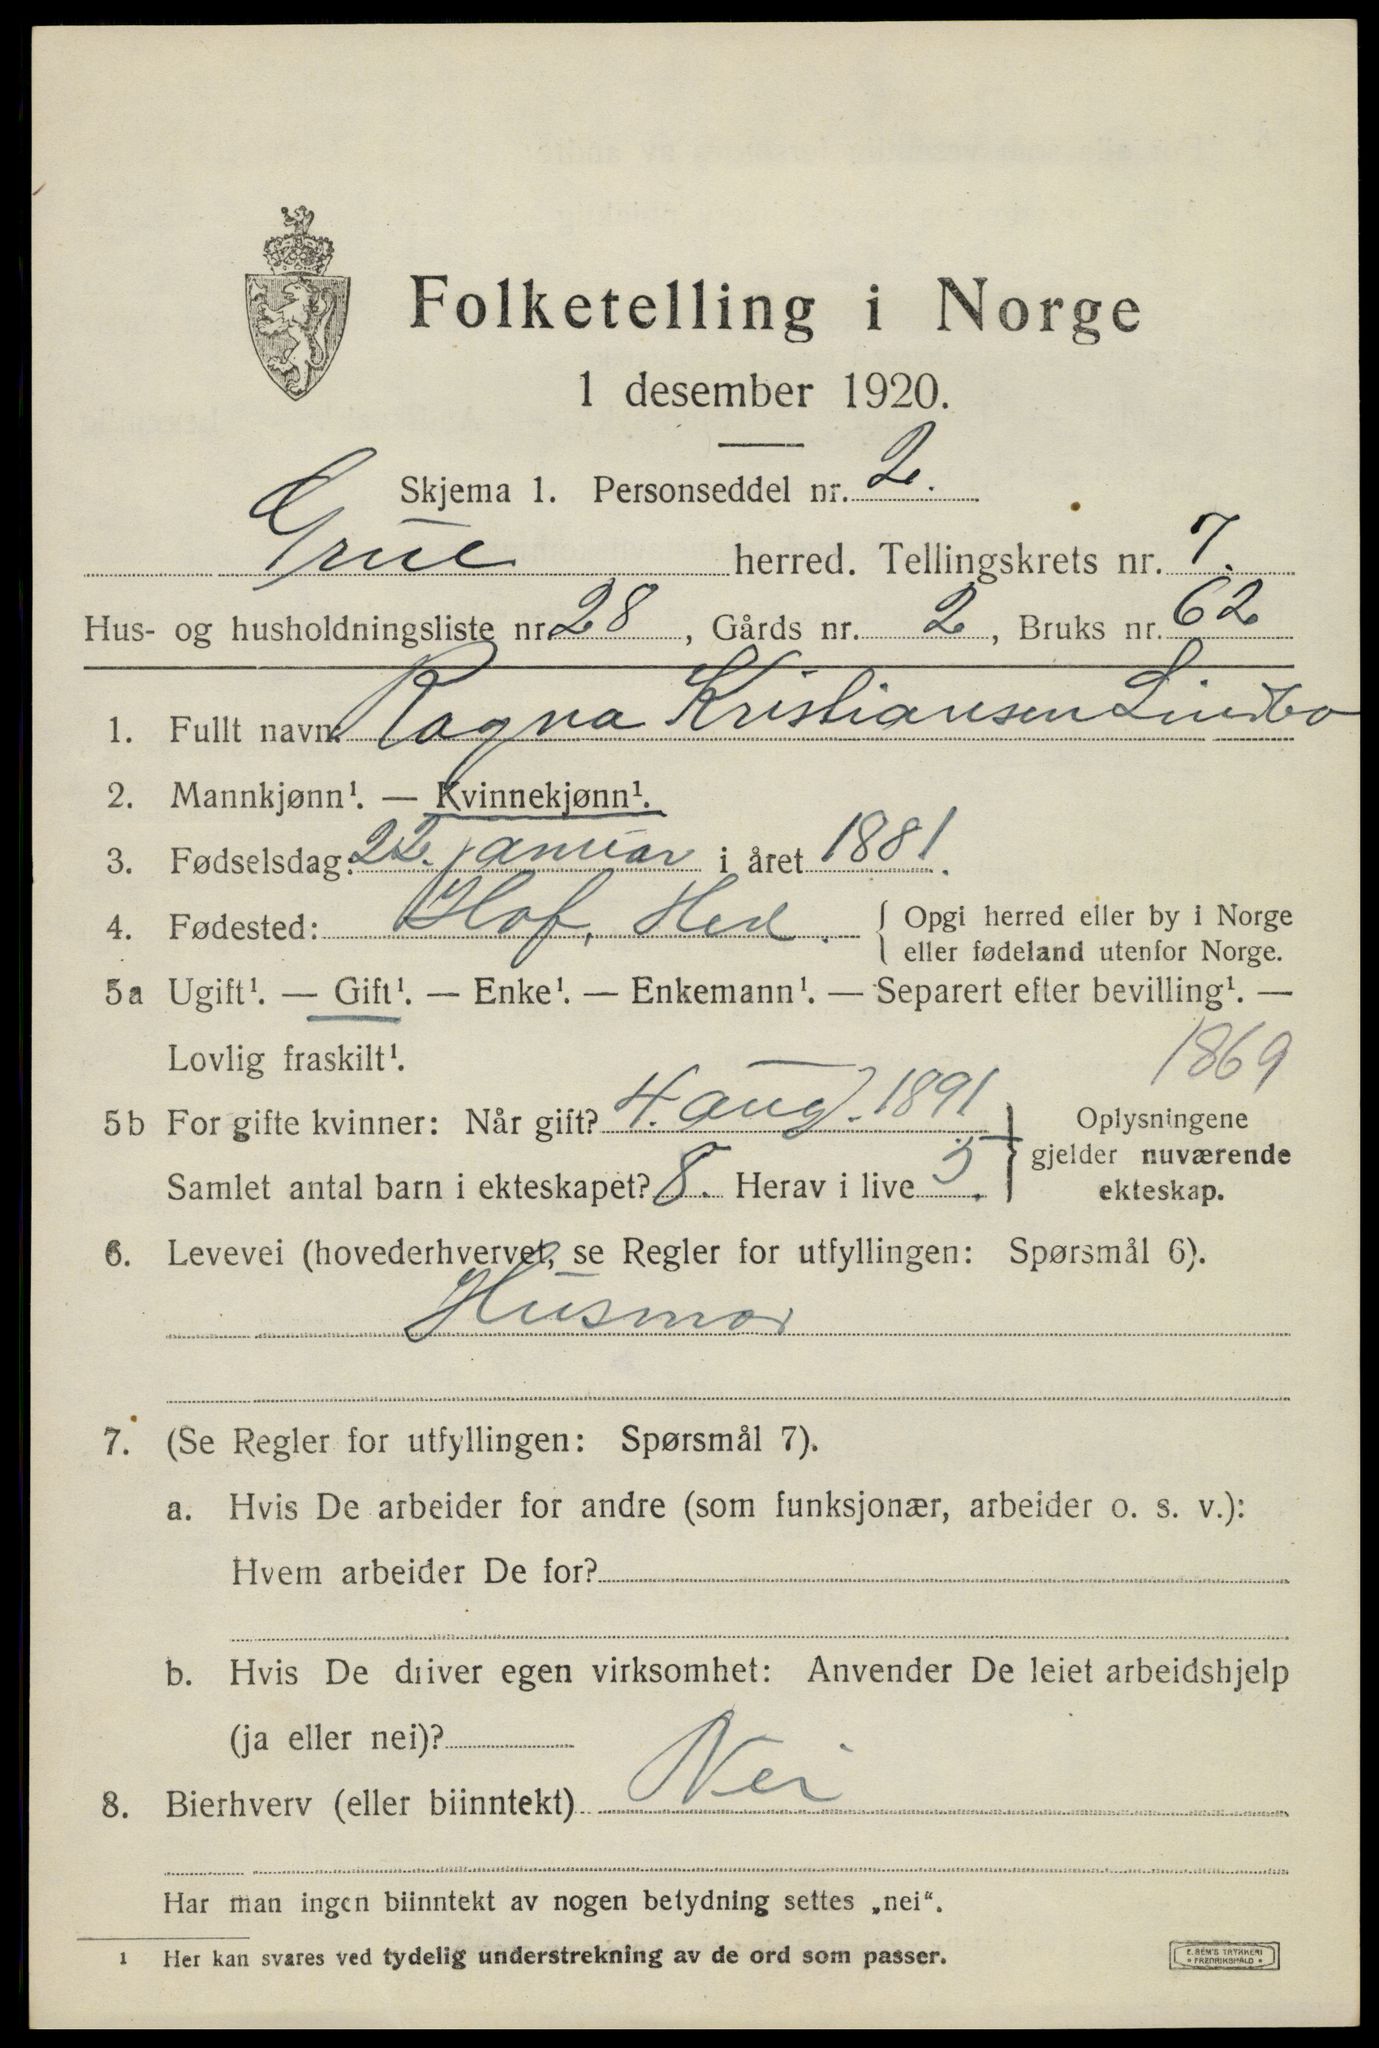 Folketelling i Norge
1 desember 1920.
Skjema 1. Personseddel nr. 2.
Grue herred. Tellingskrets nr. 7.
Hus- og husholdningsliste nr. 28, Gårds nr. 2, Bruks nr. 62
1. Fullt navn: Ragna Kristiansen Lindbo
2. Mannkjønn¹. — Kvinnekjønn¹.
3. Fødselsdag: 22. januar i året 1881.
4. Fødested: Hof, Hed. { Opgi herred eller by i Norge
eller fødeland utenfor Norge.
5a Ugift¹. — Gift¹. — Enke¹. — Enkemann¹. — Separert efter bevilling¹. —
Lovlig fraskilt¹.
1869
5b For gifte kvinner: Når gift? 4. aug. 1891 } Oplysningene
gjelder nuværende
Samlet antal barn i ekteskapet? 8. Herav i live 5. ekteskap.
6. Levevei (hovederhvervet, se Regler for utfyllingen: Spørsmål 6).
Husmor
7. (Se Regler for utfyllingen: Spørsmål 7).
a. Hvis De arbeider for andre (som funksjonær, arbeider o. s. v.):
Hvem arbeider De for?
b. Hvis De driver egen virksomhet: Anvender De leiet arbeidshjelp
(ja eller nei)?
8. Bierhverv (eller biinntekt) Nei
Har man ingen biinntekt av nogen betydning settes „nei“.
1 Her kan svares ved tydelig understrekning av de ord som passer.
E. SEM'S TRYKKERI
* FREDRIKSHALD *